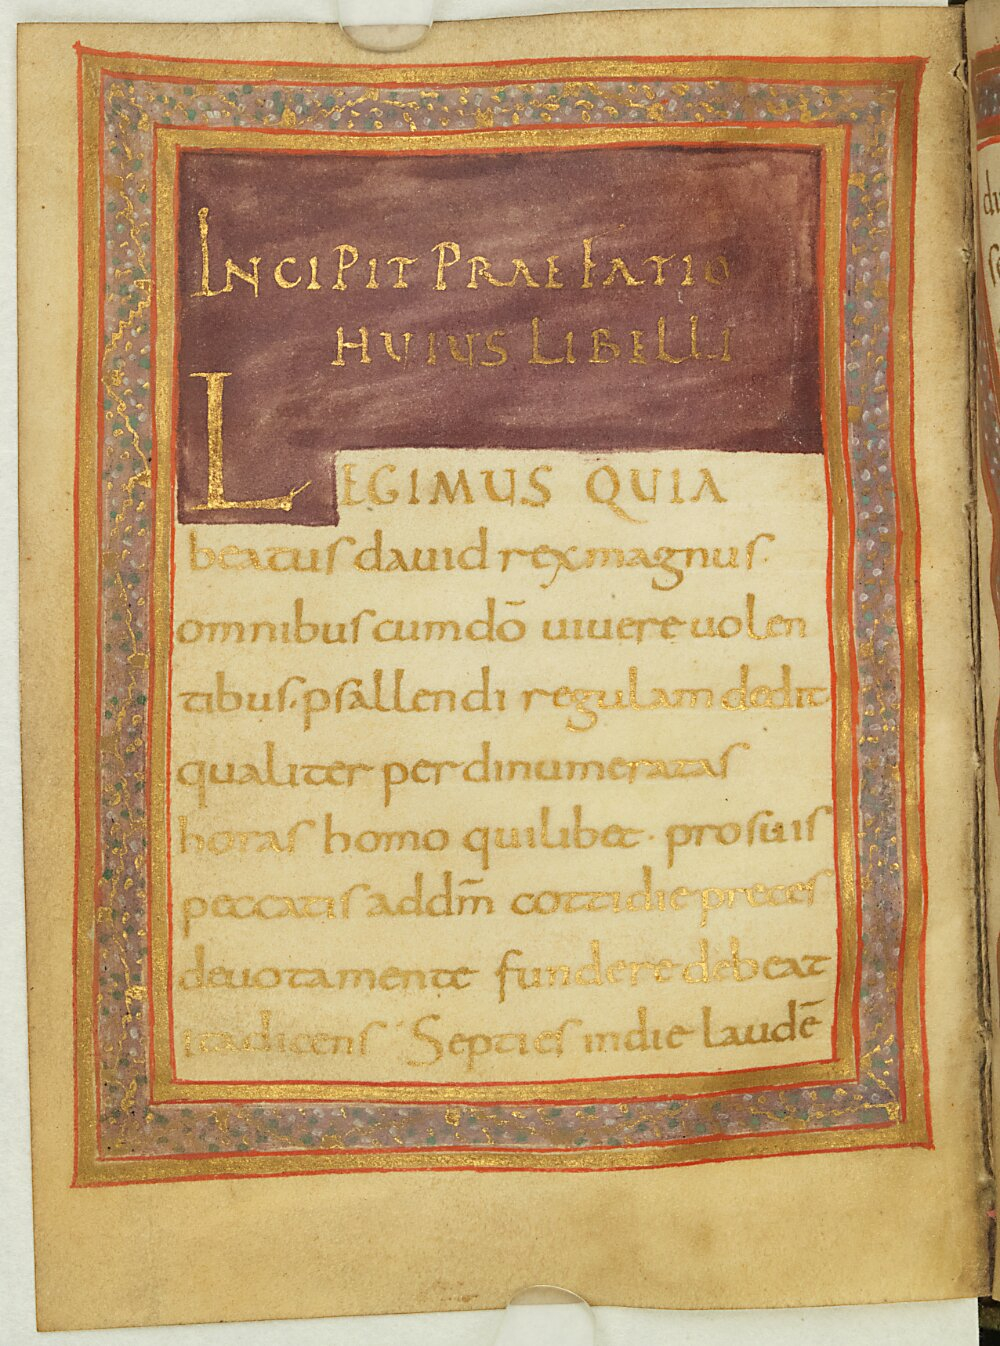 INCIPIT PRAEFATIO
HUIUS LIBELLI
LEGIMUS QUIA
beatus dauid rex magnus.
omnibus cum dō uiuere uolen
tibus. psallendi regulam dedit
qualiter per dinumeratas
horas homo quilibet. pro suis
peccatis ad dm̄ cottidie preces
deuotamente fundere debeat
ita dicens Septies in die laudē